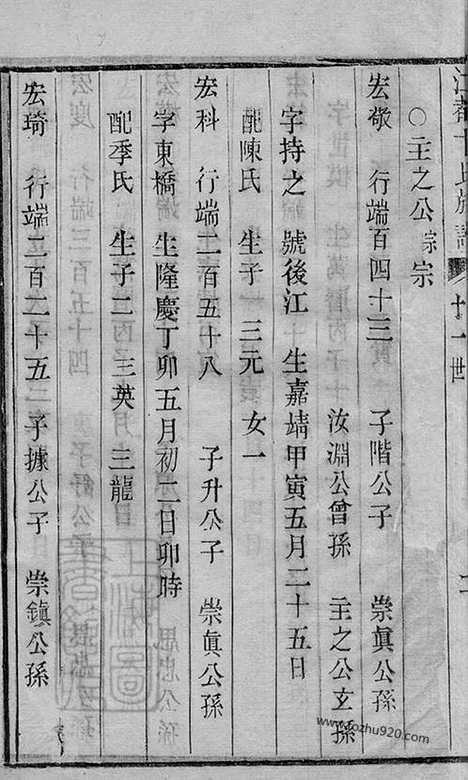 十一世
○主之公宗
宏敬 行端百四十三 子階公子 崇眞公孫
汝淵公曾孫 主之公玄孫
字持之 號後江 生嘉靖甲寅五月二十五日
配陳氏 生子一 三元 女一
宏科 行端二百五十八 子升公子 崇眞公孫
字東橋 生隆慶丁卯五月初二日卯時
配季氏 生子二 三英 三龍
宏琦 行端二百二十五 子據公子 崇鎮公孫
www.fozhu920.com